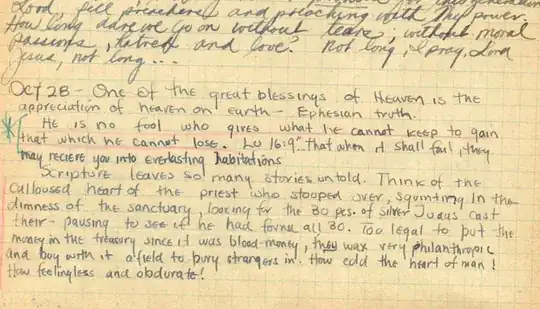 Lord, fill preachers and preaching with Thy power.
How long dare we go on without tears, without moral
passions, hatred and love? Not long, I pray, Lord
Jesus, not long...
Oct 28 - One of the great blessings of Heaven is the
appreciation of heaven on earth - Ephesian truth.
He is no fool who gives what he cannot keep to gain
that which he cannot lose. Lu 16:9 "that when it shall fail, they
may recieve you into everlasting habitations
Scripture leaves so many stories untold. Think of the
calloused heart of the priest who stooped over, squinting in the
dimness of the sanctuary, looking for the 30 pcs. of silver Judas cast
their - pausing to see if he had found all 30. Too legal to put the
money in the treasury since it was blood-money, they wax very philanthropic
and buy with it a field to bury strangers in. How cold the heart of man!
How feelingless and obdurate!